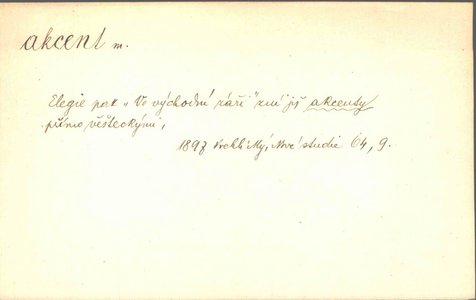 akcent m.
Elegie pak „Ve východní záři" zní již akcenty
přímo věšteckými,
1897 Vrchlický, Nové studie 64, 9.